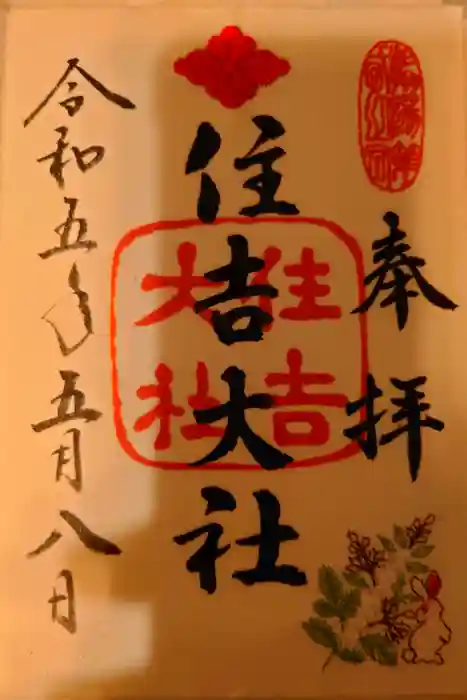 奉拝
住吉大社
住吉
大社
令和五年五月八日